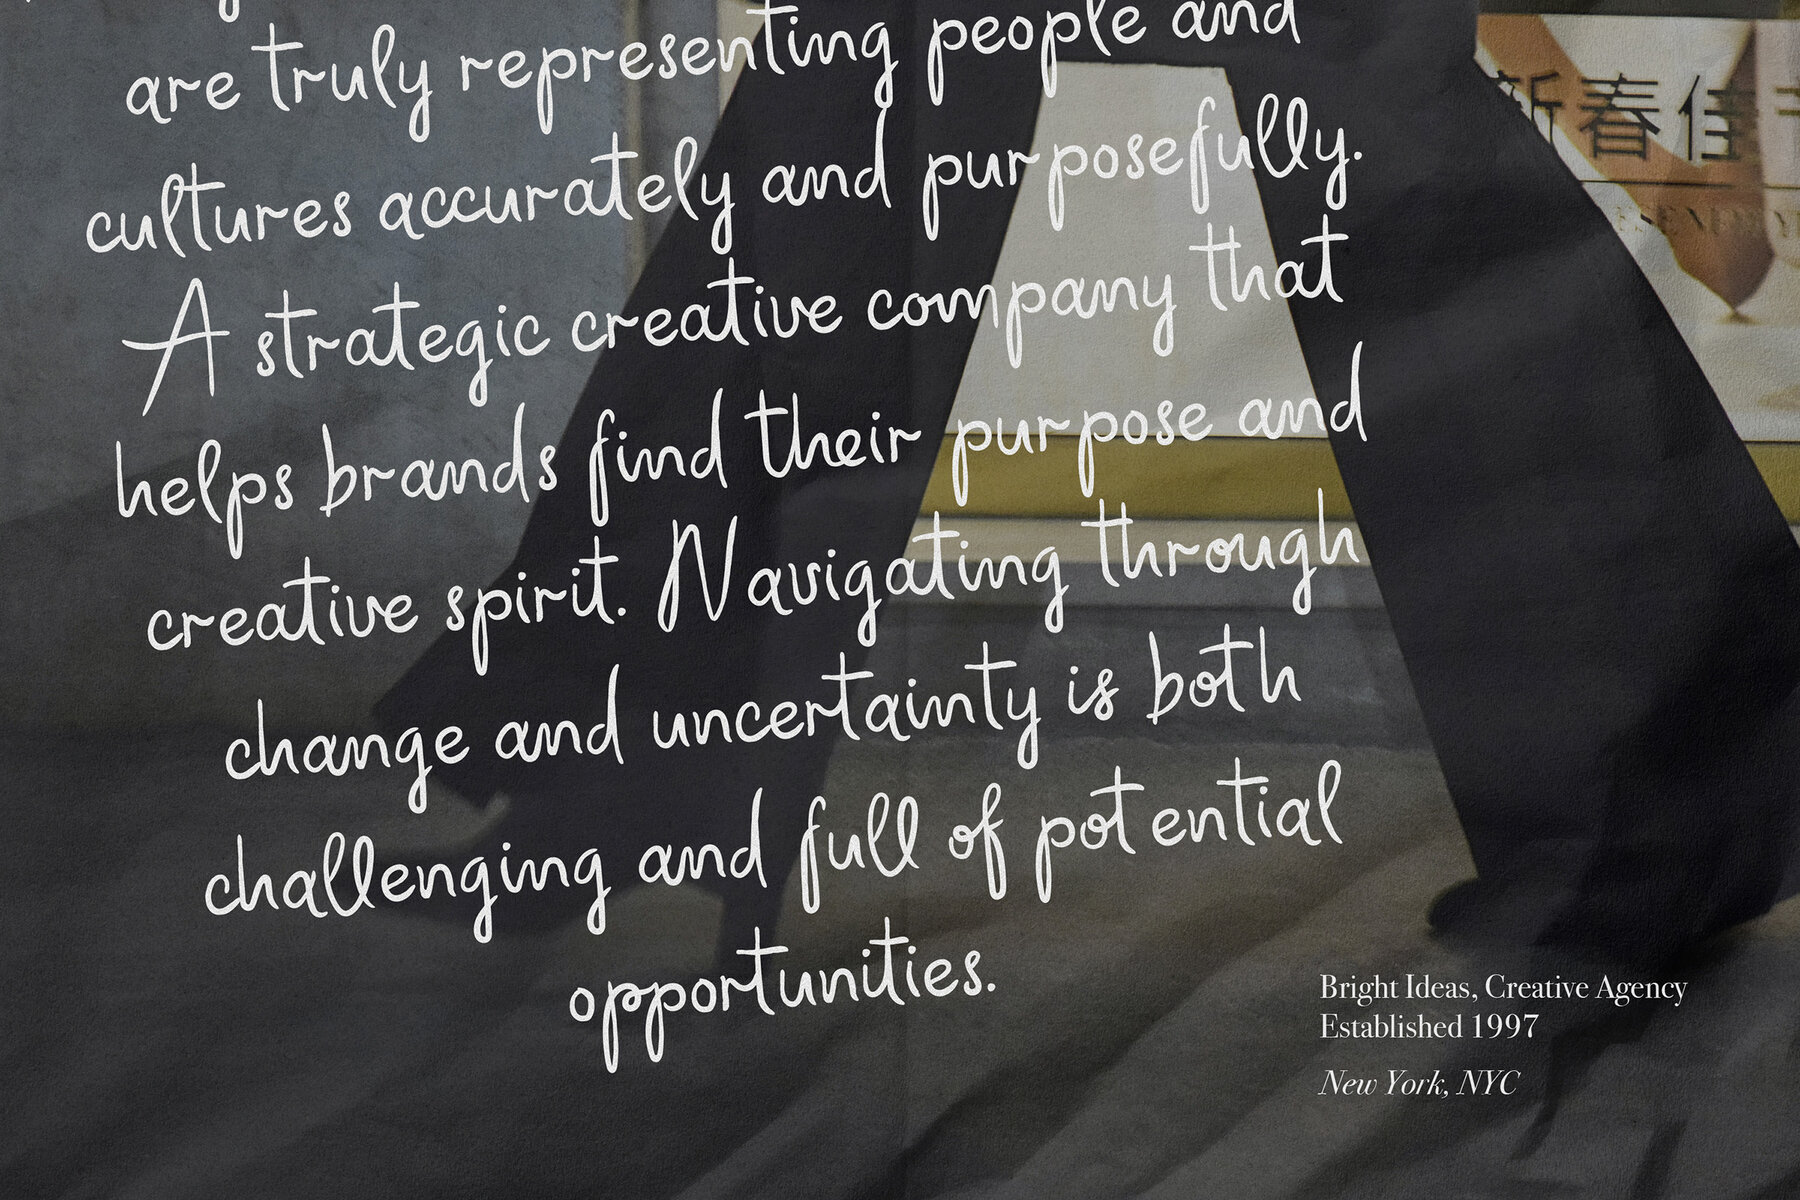 are truly representing people and
cultures accurately and purposefully.
A strategic creative company that
helps brands find their purpose and
creative spirit. Navigating through
change and uncertainty is both
challenging and full of potential
opportunities.
新春佳
Bright Ideas, Creative Agency
Established 1997
New York, NYC